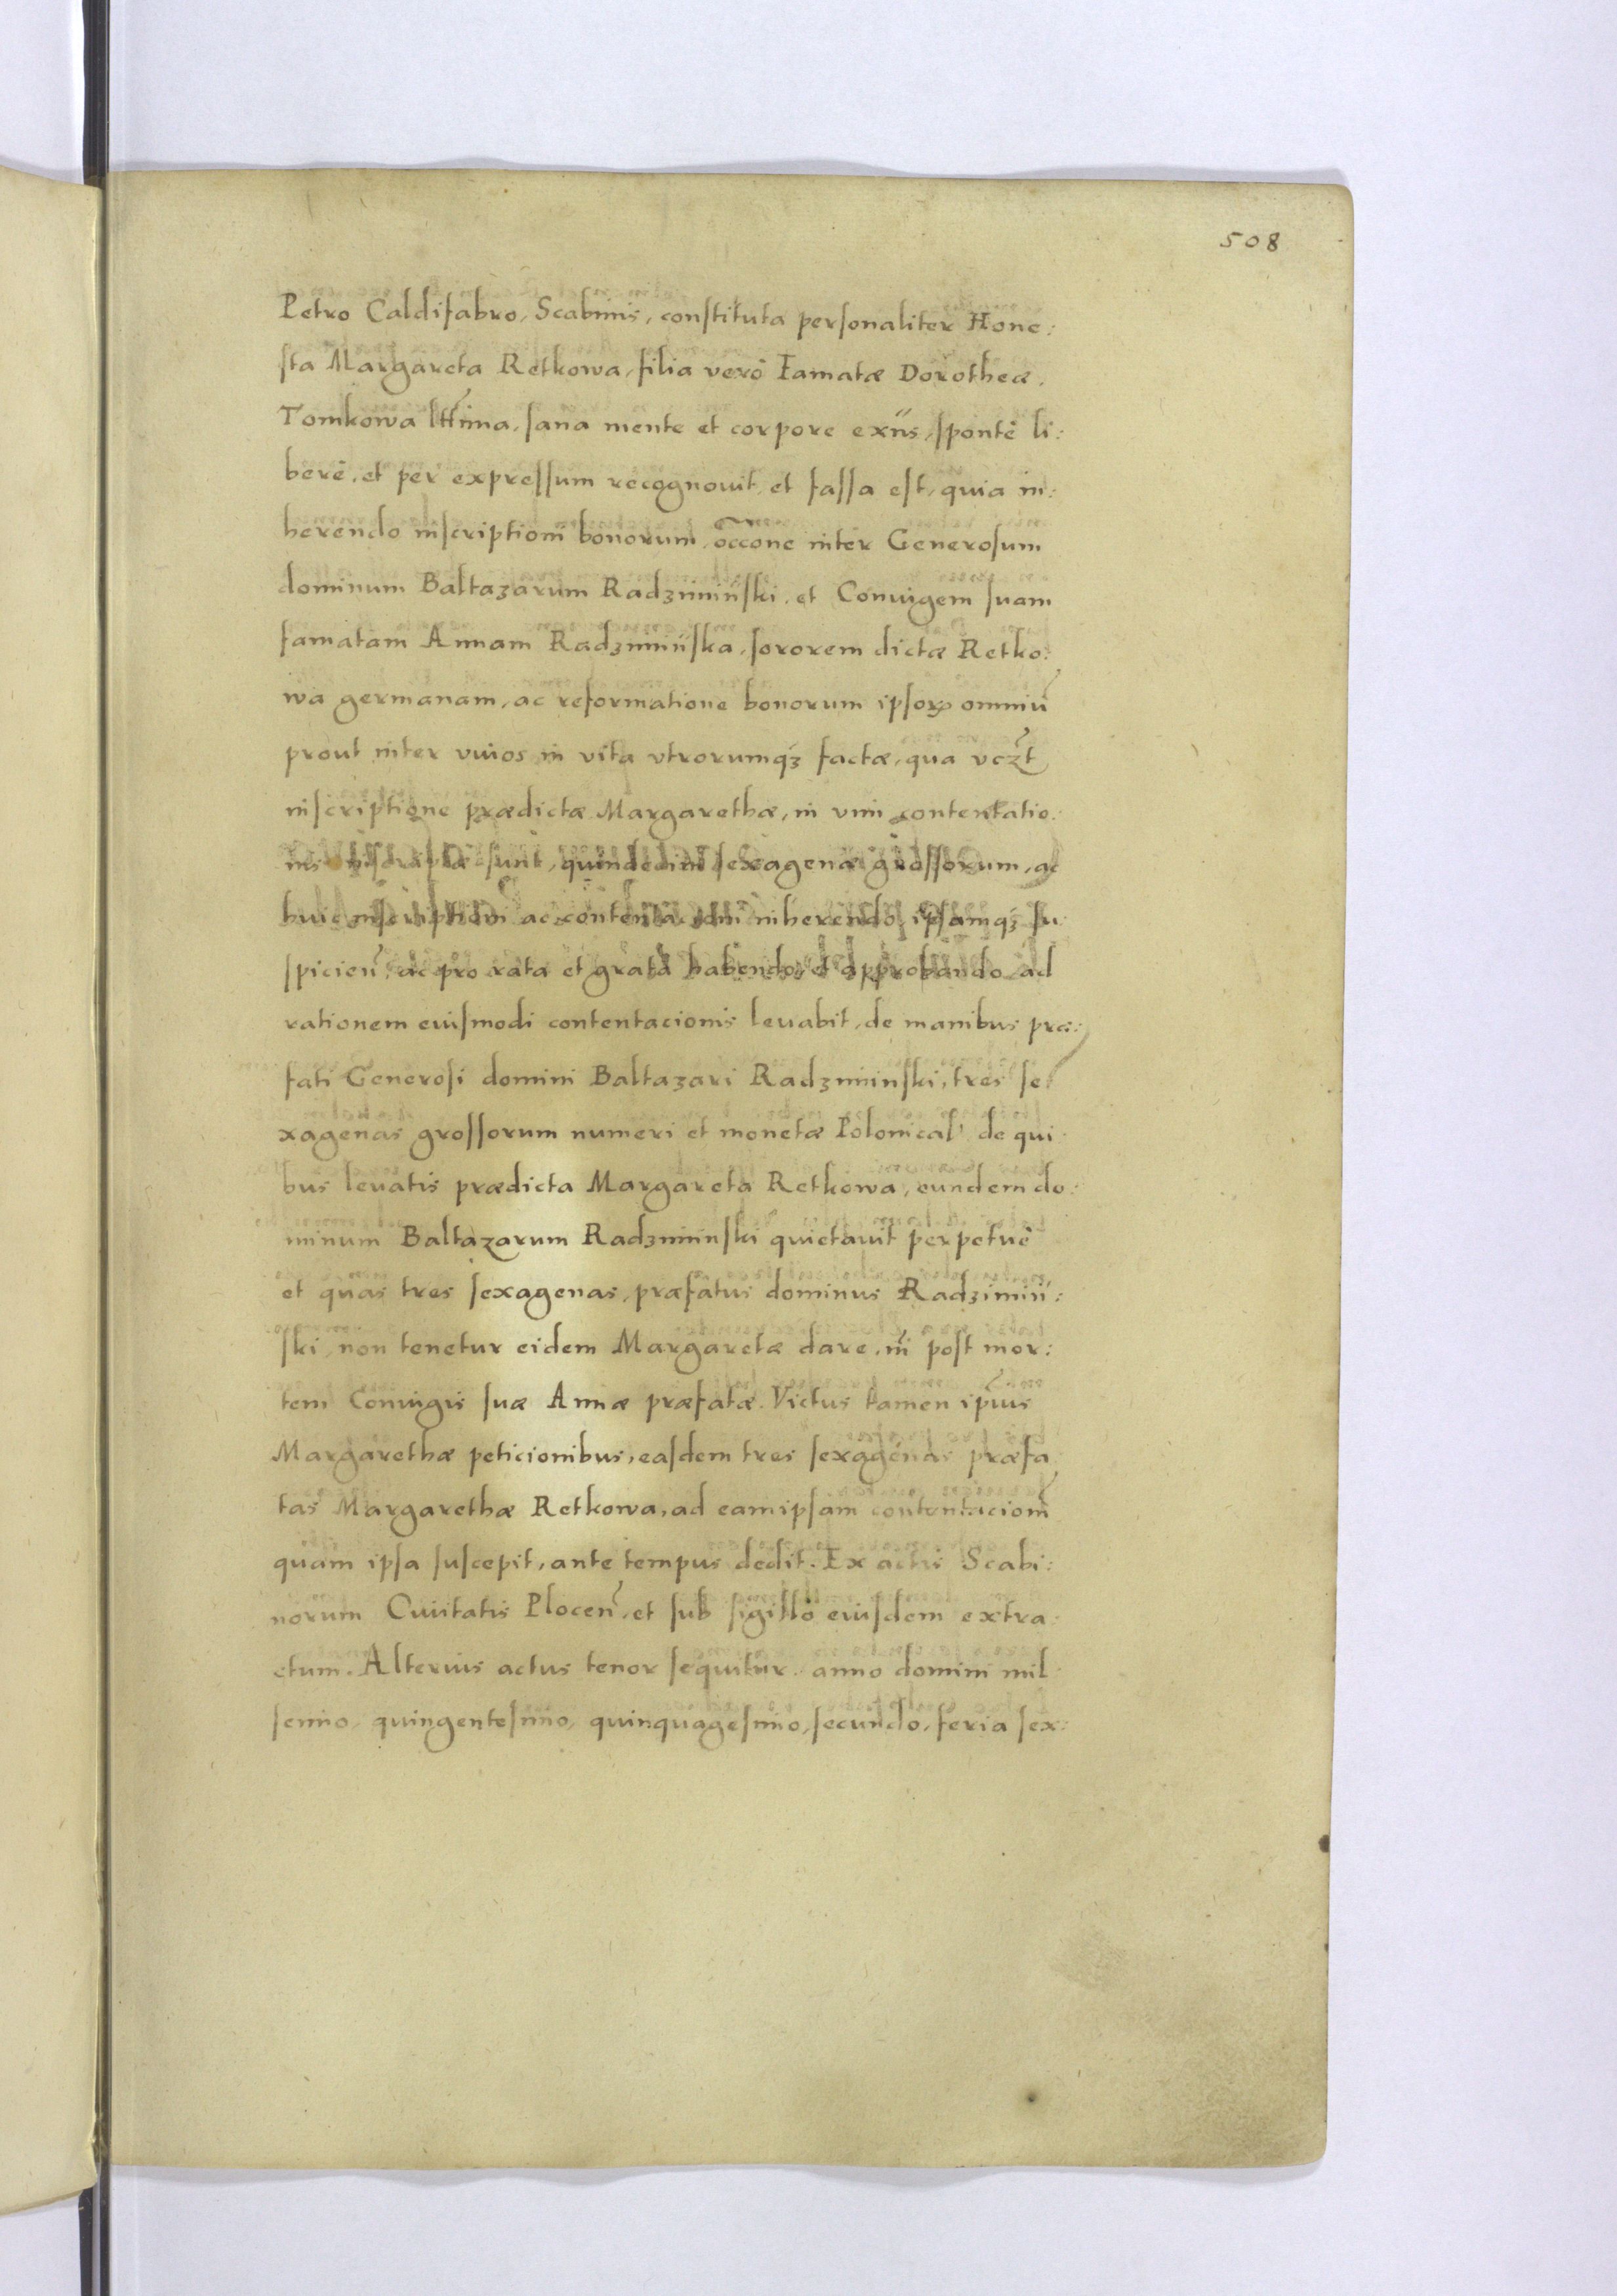 508
Petro Caldifabro, Scabinis, conſtituta perſonaliter Hone:
ſta Margareta Retkowa, filia verò Famatæ Dorotheæ,
Tomkowa lttima, ſana mente et corpore exiīs, ſpontè li:
berè, et per expreſſum recognouit, et faſſa eſt, quia in:
herendo inſcriptioni bonorum, occone inter Generoſum
dominum Baltazarum Radziminſki, et Coniugem ſuam
famatam Annam Radziminſka, ſororem dictæ Retko:
wa germanam, ac reformatione bonorum ipſorꝝ omniū
prout inter viuos in vita vtrorumqꝫ factæ, qua vczt
inſcriptione prædictæ Margarethæ, in vim contentatio:
nis inſcriptæ ſunt, quindecim ſexagenæ groſſorum, ac
huic inſcriptioni ac contentacioni inherendo, ipſamqꝫ ſu
ſpicień, ac pro rata et grata habendo, et approbando ad
rationem eiuſmodi contentacionis leuabit, de manibus præ:
fati Generoſi domini Baltazari Radziminſki, tres ſe
xagenas groſſorum numeri et monetæ Polonical' de qui
bus leuatis prædicta Margareta Retkowa, eundem do:
minum Baltazarum Radziminſki quietauit perpetuè
et quas tres ſexagenas, præfatus dominus Radzimiń:
ſki, non tenetur eidem Margaretæ dare, nī post mor:
tem Coniugis ſuæ Annæ præfatæ. Victus tamen ipius
Margarethæ peticionibus, eaſdem tres ſexagenas præfa
tas Margarethæ Retkowa, ad eamipſam contentacionī
quam ipſa ſuſcepit, ante tempus dedit. Ex actis Scabi:
norum Ciuitatis Plocen̄, et ſub ſigillo eiuſdem extra
ctum. Alterius actus tenor ſequitur. anno domini mil
ſemo, quingenteſimo, quinquageſimo, ſecundo, feria ſex: